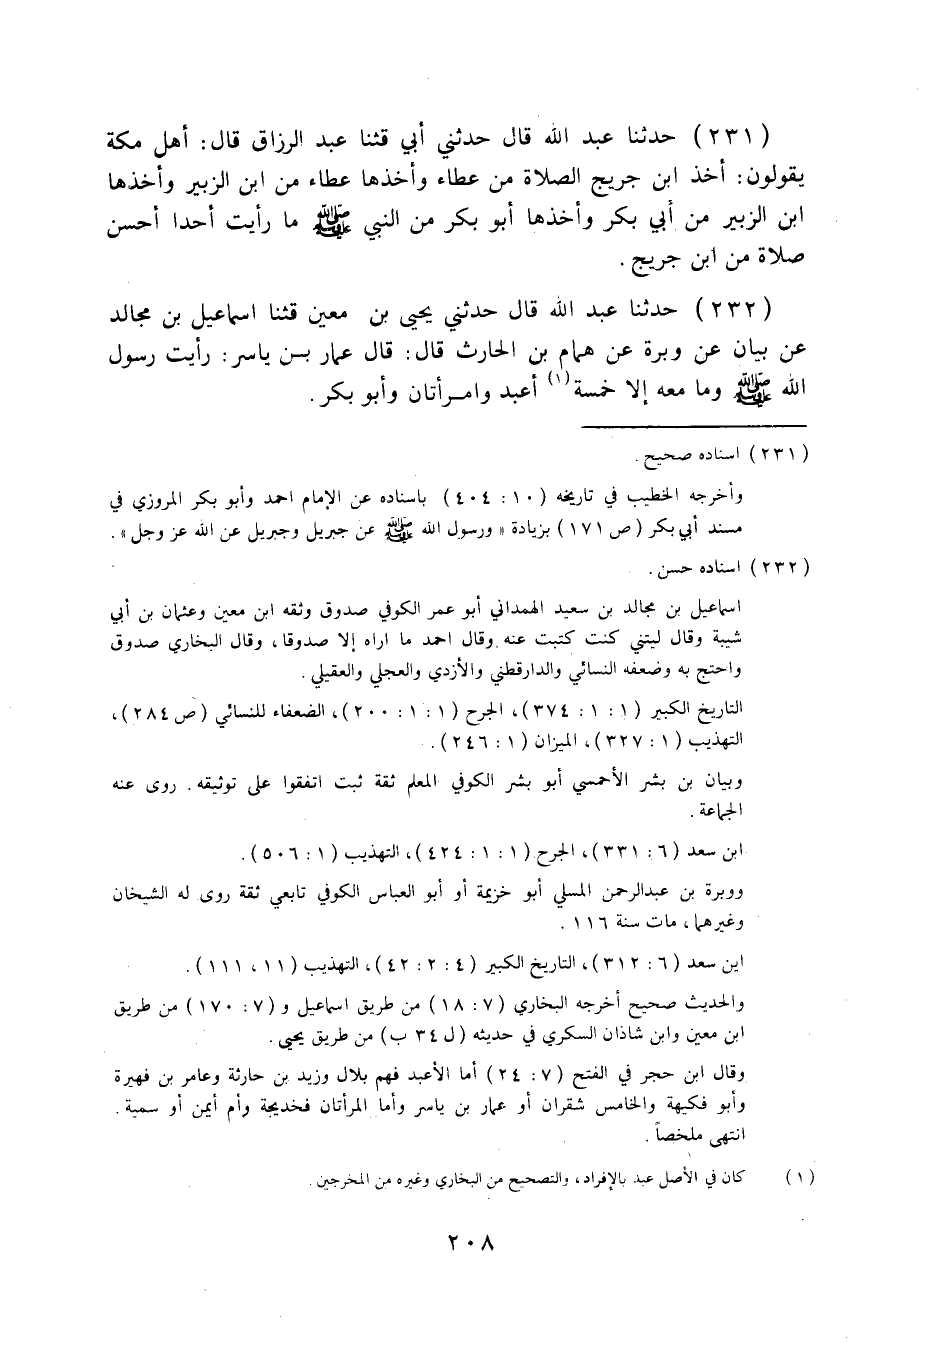 (٢٣١) حدثنا عبد الله قال حدثني أبي قثنا عبد الرزاق قال: أهل مكة
يقولون: أخذ ابن جريج الصلاة من عطاء وأخذها عطاء من ابن الزبير وأخذها
ابن الزبير من أبي بكر وأخذها أبو بكر من النبي ﷺ ما رأيت أحدا أحسن
صلاة من ابن جريج.
(٢٣٢) حدثنا عبد الله قال حدثني يحيى بن معين قثنا اسماعيل بن مجالد
عن بيان عن وبرة عن همام بن الحارث قال: قال عمار بن ياسر: رأيت رسول
الله ﷺ وما معه إلا خمسة(١) أعبد وامرأتان وأبو بكر.
(٢٣١) اسناده صحيح.
وأخرجه الخطيب في تاريخه (١٠: ٤٠٤) باسناده عن الإمام احمد وأبو بكر المروزي في
مسند أبي بكر (ص ١٧١) بزيادة « ورسول الله ﷺ عن جبريل وجبريل عن الله عز وجل ».
(٢٣٢) اسناده حسن.
اسماعيل بن مجالد بن سعيد الهمداني أبو عمر الكوفي صدوق وثقه ابن معين وعثمان بن أبي
شيبة وقال ليتني كنت كتبت عنه وقال احمد ما اراه إلا صدوقا، وقال البخاري صدوق
واحتج به وضعفه النسائي والدارقطني والأزدي والعجلي والعقيلي.
التاريخ الكبير (١: ١: ٣٧٤)، الجرح (١: ١: ٢٠٠)، الضعفاء للنسائي (ص ٢٨٤)،
التهذيب (١: ٣٢٧)، الميزان (١: ٢٤٦).
وبيان بن بشر الأحمسي أبو بشر الكوفي المعلم ثقة ثبت اتفقوا على توثيقه. روى عنه
الجماعة.
ابن سعد (٦: ٣٣١)، الجرح (١: ١: ٤٢٤)، التهذيب (١: ٥٠٦).
ووبرة بن عبدالرحمن المسلي أبو خزيمة أو أبو العباس الكوفي تابعي ثقة روى له الشيخان
وغيرهما، مات سنة ١١٦.
اين سعد (٦: ٣١٢)، التاريخ الكبير (٤: ٢: ٤٢)، التهذيب (١١، ١١١).
والحديث صحيح أخرجه البخاري (٧: ١٨) من طريق اسماعيل و (٧: ١٧٠) من طريق
ابن معين وابن شاذان السكري في حديثه (ل ٣٤ ب) من طريق يحيى.
وقال ابن حجر في الفتح (٧: ٢٤) أما الأعبد فهم بلال وزيد بن حارثة وعامر بن فهيرة
وأبو فكيهة والخامس شقران أو عمار بن ياسر وأما المرأتان فخديجة وأم أيمن أو سمية.
انتهى ملخصاً.
(١) كان في الأصل عبد بالإفراد، والتصحيح من البخاري وغيره من المخرجين.
٢٠٨